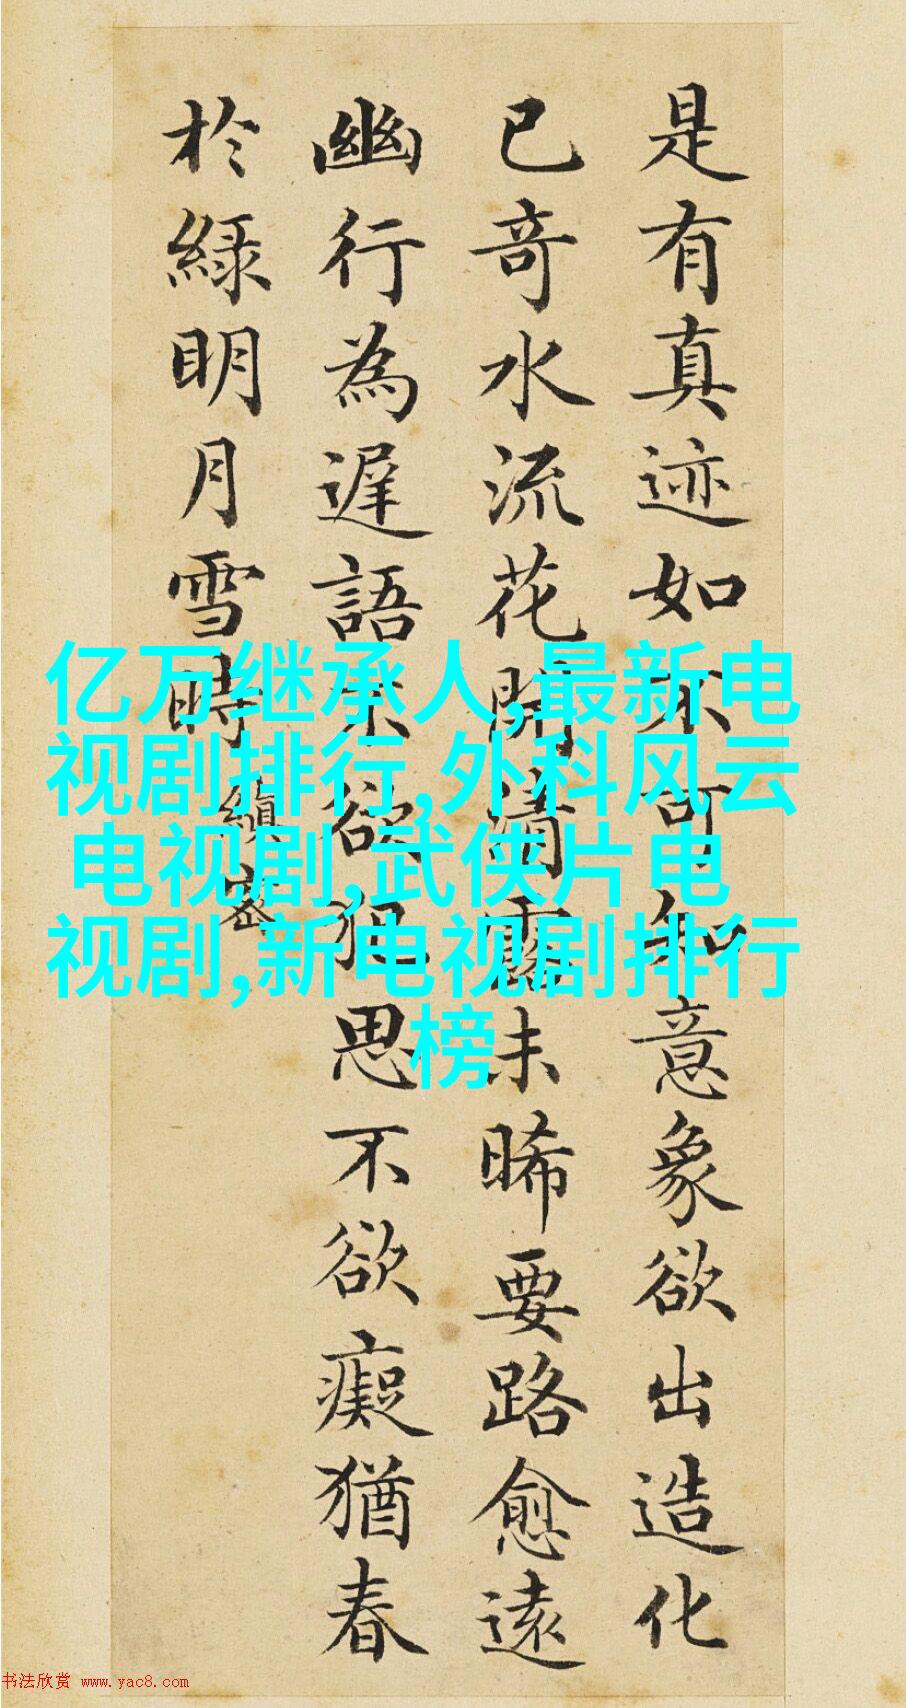 是有真迹如不可知意象欲出造化
已奇水流花開清露未晞要路愈遠
幽行為遲語不欲犯思不欲癡猶春
於綠明月雪時
縝密
亿万继承人,最新电
视剧排行,外科风云
电视剧,武侠片电
视剧,新电视剧排行
榜
书法欣赏 www.yac8.com